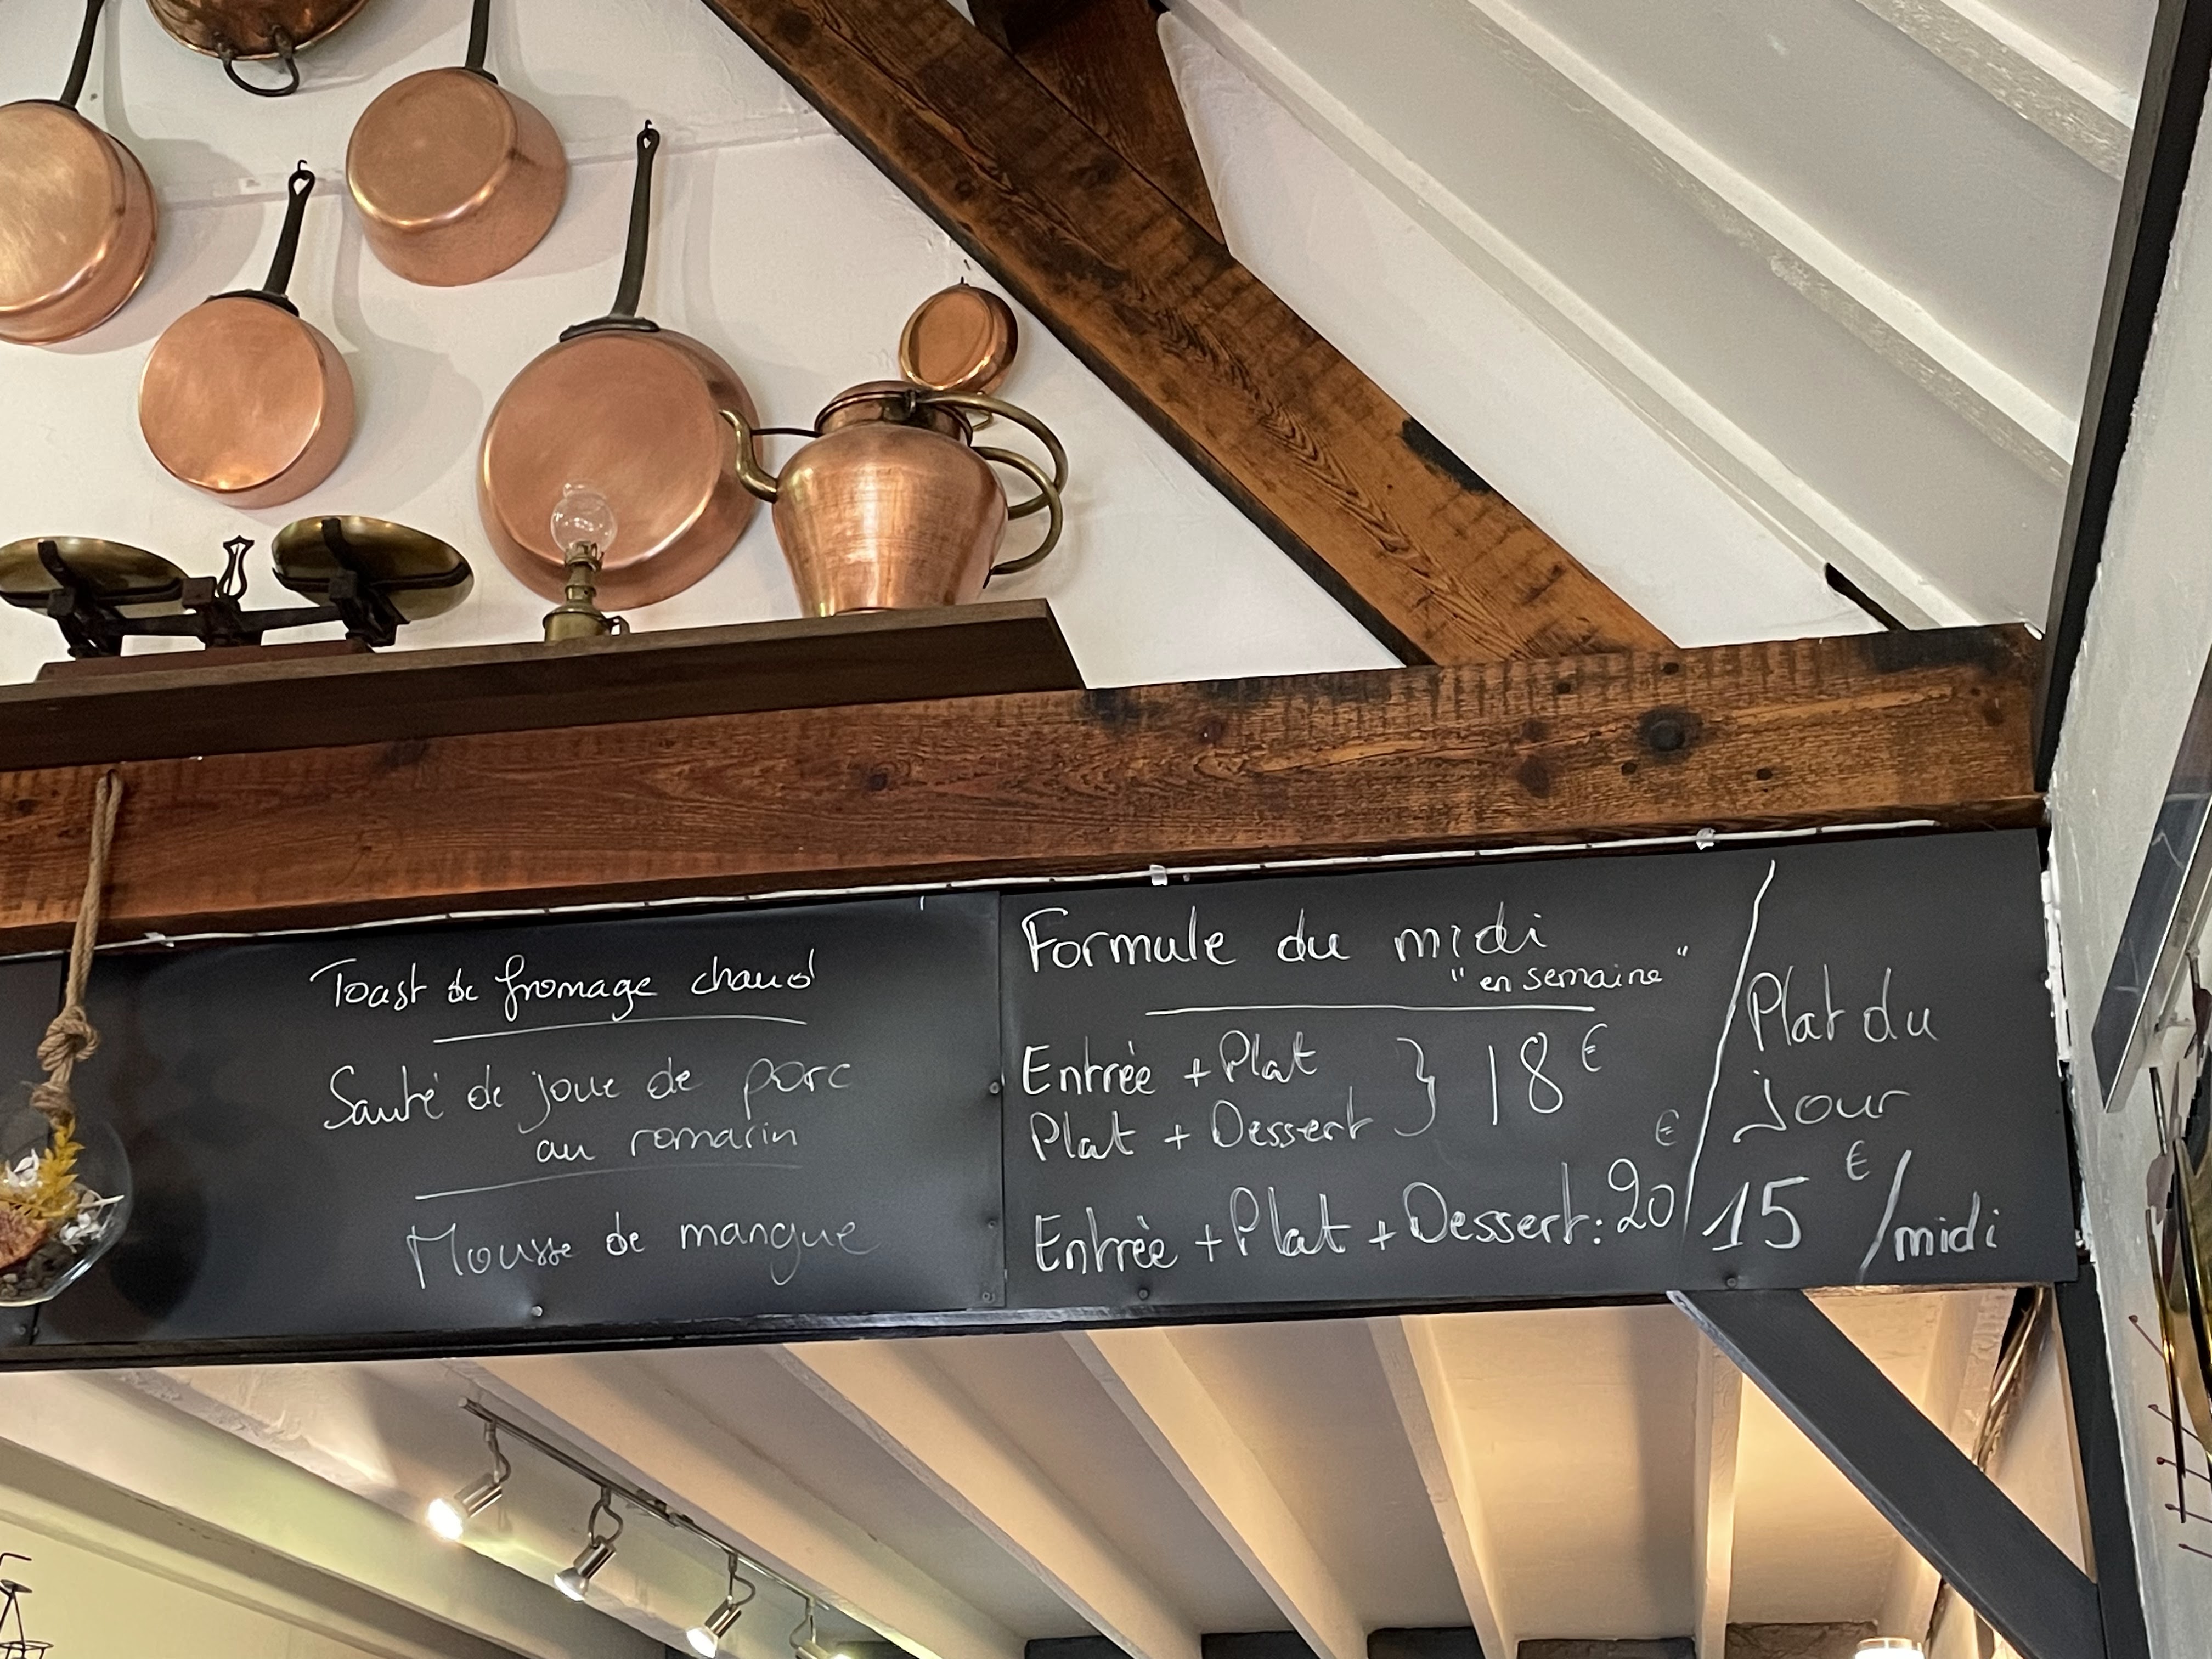 Toast de fromage chaud
Sauté de joue de porc
au romarin
Mousse de mangue
Formule du midi
"en semaine"
Entrée + Plat
Plat + Dessert } 18€
Entrée + Plat + Dessert : 20€
Plat du
jour
15€/midi